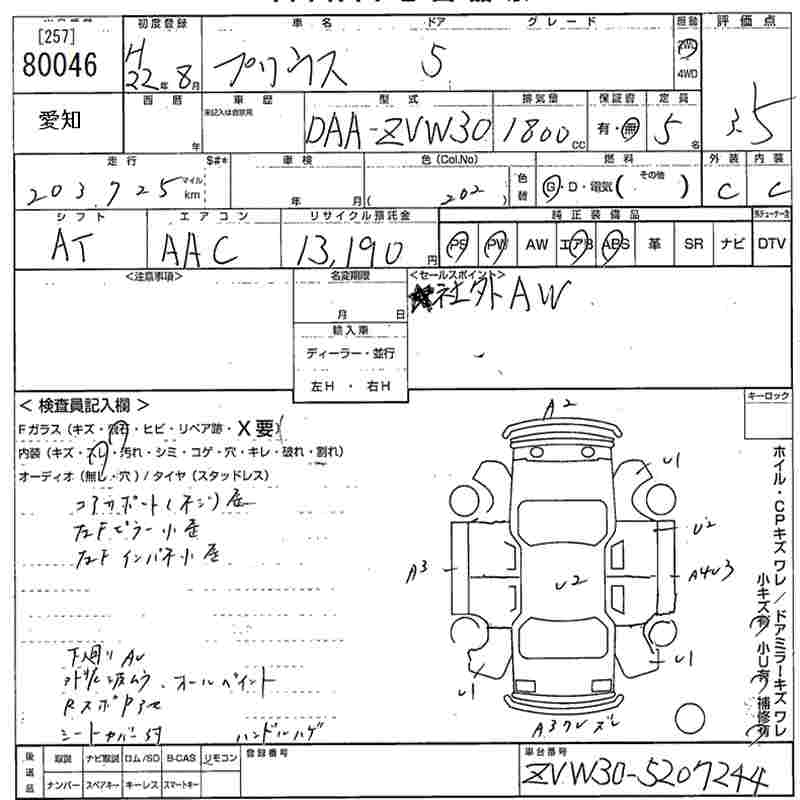 初度登録 車名 ドア グレード 駆動 評価点
[257]
80046 H22年8月 プリウス 5 2WD 4WD 3.5
愛知 西暦 年 車歴 未記入は自家用 型式 DAA-ZVW30 排気量 1800cc 保証書 有・無 定員 5名
走行 $#* 車検 色(Col.No) 燃料 外装 内装
203,725 マイル km 年 月 ( 202 ) 色替 G・D・電気( その他 ) C C
シフト エアコン リサイクル預託金 純正装備品
AT AAC 13,190円 PS PW AW エアB ABS 革 SR ナビ DTV
<注意事項> 名変期限 <セールスポイント>
月 日 ★社外AW
輸入車
ディーラー・並行
左H ・ 右H
< 検査員記入欄 > キーロック
Fガラス (キズ・飛石・ヒビ・リペア跡・X要)
内装 (キズ・スレ・汚れ・シミ・コゲ・穴・キレ・破れ・割れ)
オーディオ (無し・穴) / タイヤ (スタッドレス)
コアサポート(ネジ)歪
左Fピラー小歪
左Fインパネ小歪
下廻りAU
オールペイント
シートカバー付 ハンドルハゲ
A2
U1
U2
A3 U2 A4U3
U1 U1
A3ワレズレ
ホイル・CPキズ ワレ / ドアミラーキズ ワレ
小キズ有 小U有 補修有
後送品 取説 ナビ取説 ロム/SD B-CAS リモコン 登録番号 車台番号
ナンバー スペアキー キーレス スマートキー ZVW30-5207244